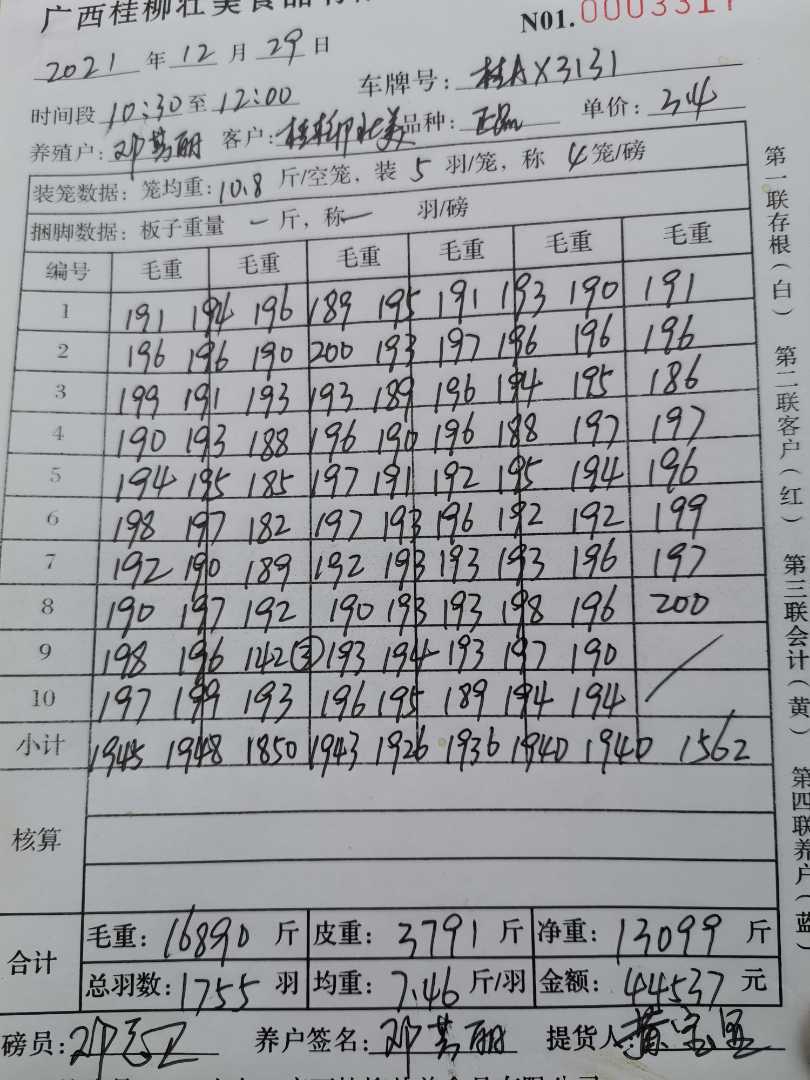 广西桂柳壮美食品有
N01. 0003317
2021 年 12 月 29 日
时间段 10:30 至 12:00 车牌号: 桂AX3131
养殖户: 邓 丽 客户: 桂柳壮美 品种: 单价: 3.4
装笼数据: 笼均重: 10.8 斤/空笼, 装 5 羽/笼, 称 4 笼/磅
捆脚数据: 板子重量 一 斤, 称 一 羽/磅
编号 毛重 毛重 毛重 毛重 毛重 毛重
1 191 194 196 189 195 191 193 190 191
2 196 196 190 200 193 197 196 196 196
3 199 191 193 193 189 196 194 195 186
4 190 193 188 196 190 196 188 197 197
5 194 195 185 197 191 192 195 194 196
6 198 197 182 197 193 196 192 192 199
7 192 190 189 192 193 193 193 196 197
8 190 197 192 190 193 193 198 196 200
9 198 196 142(3) 193 194 193 197 190
10 197 199 193 196 195 189 194 194 /
小计 1945 1948 1850 1943 1926 1936 1940 1940 1562
核算
合计 毛重: 16890 斤 皮重: 3791 斤 净重: 13099 斤
总羽数: 1755 羽 均重: 7.46 斤/羽 金额: 44537 元
磅员: 邓 养户签名: 邓 丽 提货人: 黄宝
第一联存根(白) 第二联客户(红) 第三联会计(黄) 第四联养户(蓝)